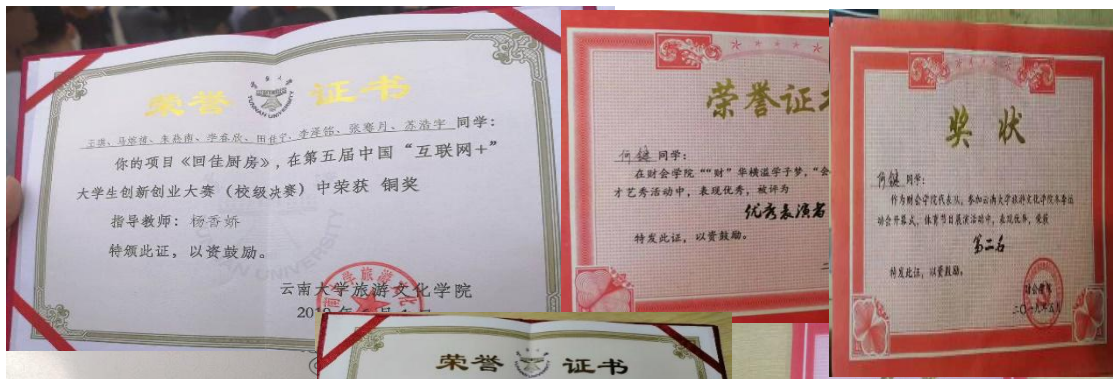 荣誉 证书
YUNNAN UNIVERSITY
同学：
你的项目《回佳厨房》，在第五届中国“互联网+”
大学生创新创业大赛（校级决赛）中荣获 铜奖
指导教师：杨香娇
特颁此证，以资鼓励。
云南大学旅游文化学院
荣誉证
何键 同学：
在财会学院““财”华横溢学子梦，“会
才艺秀活动中，表现优秀，被评为
优秀表演者
特发此证，以资鼓励。
奖状
何键 同学：
作为财会学院代表队，参加云南大学旅游文化学院冬季运
动会开幕式，体育节目展演活动中，表现优秀，荣获
第二名
特发此证，以资鼓励。
财会学院
二〇一九年五月
荣誉 证书